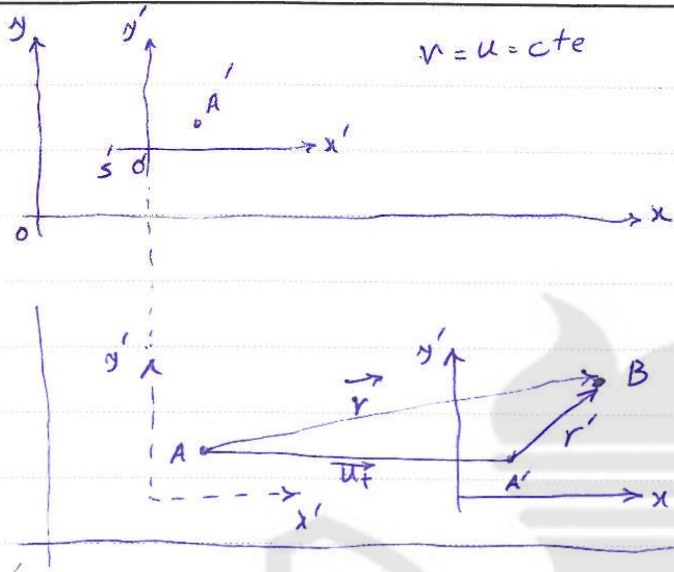 y y' v = u = cte
A'
S' O' x'
O x
y' y' B
r
A r'
ut A'
x' x